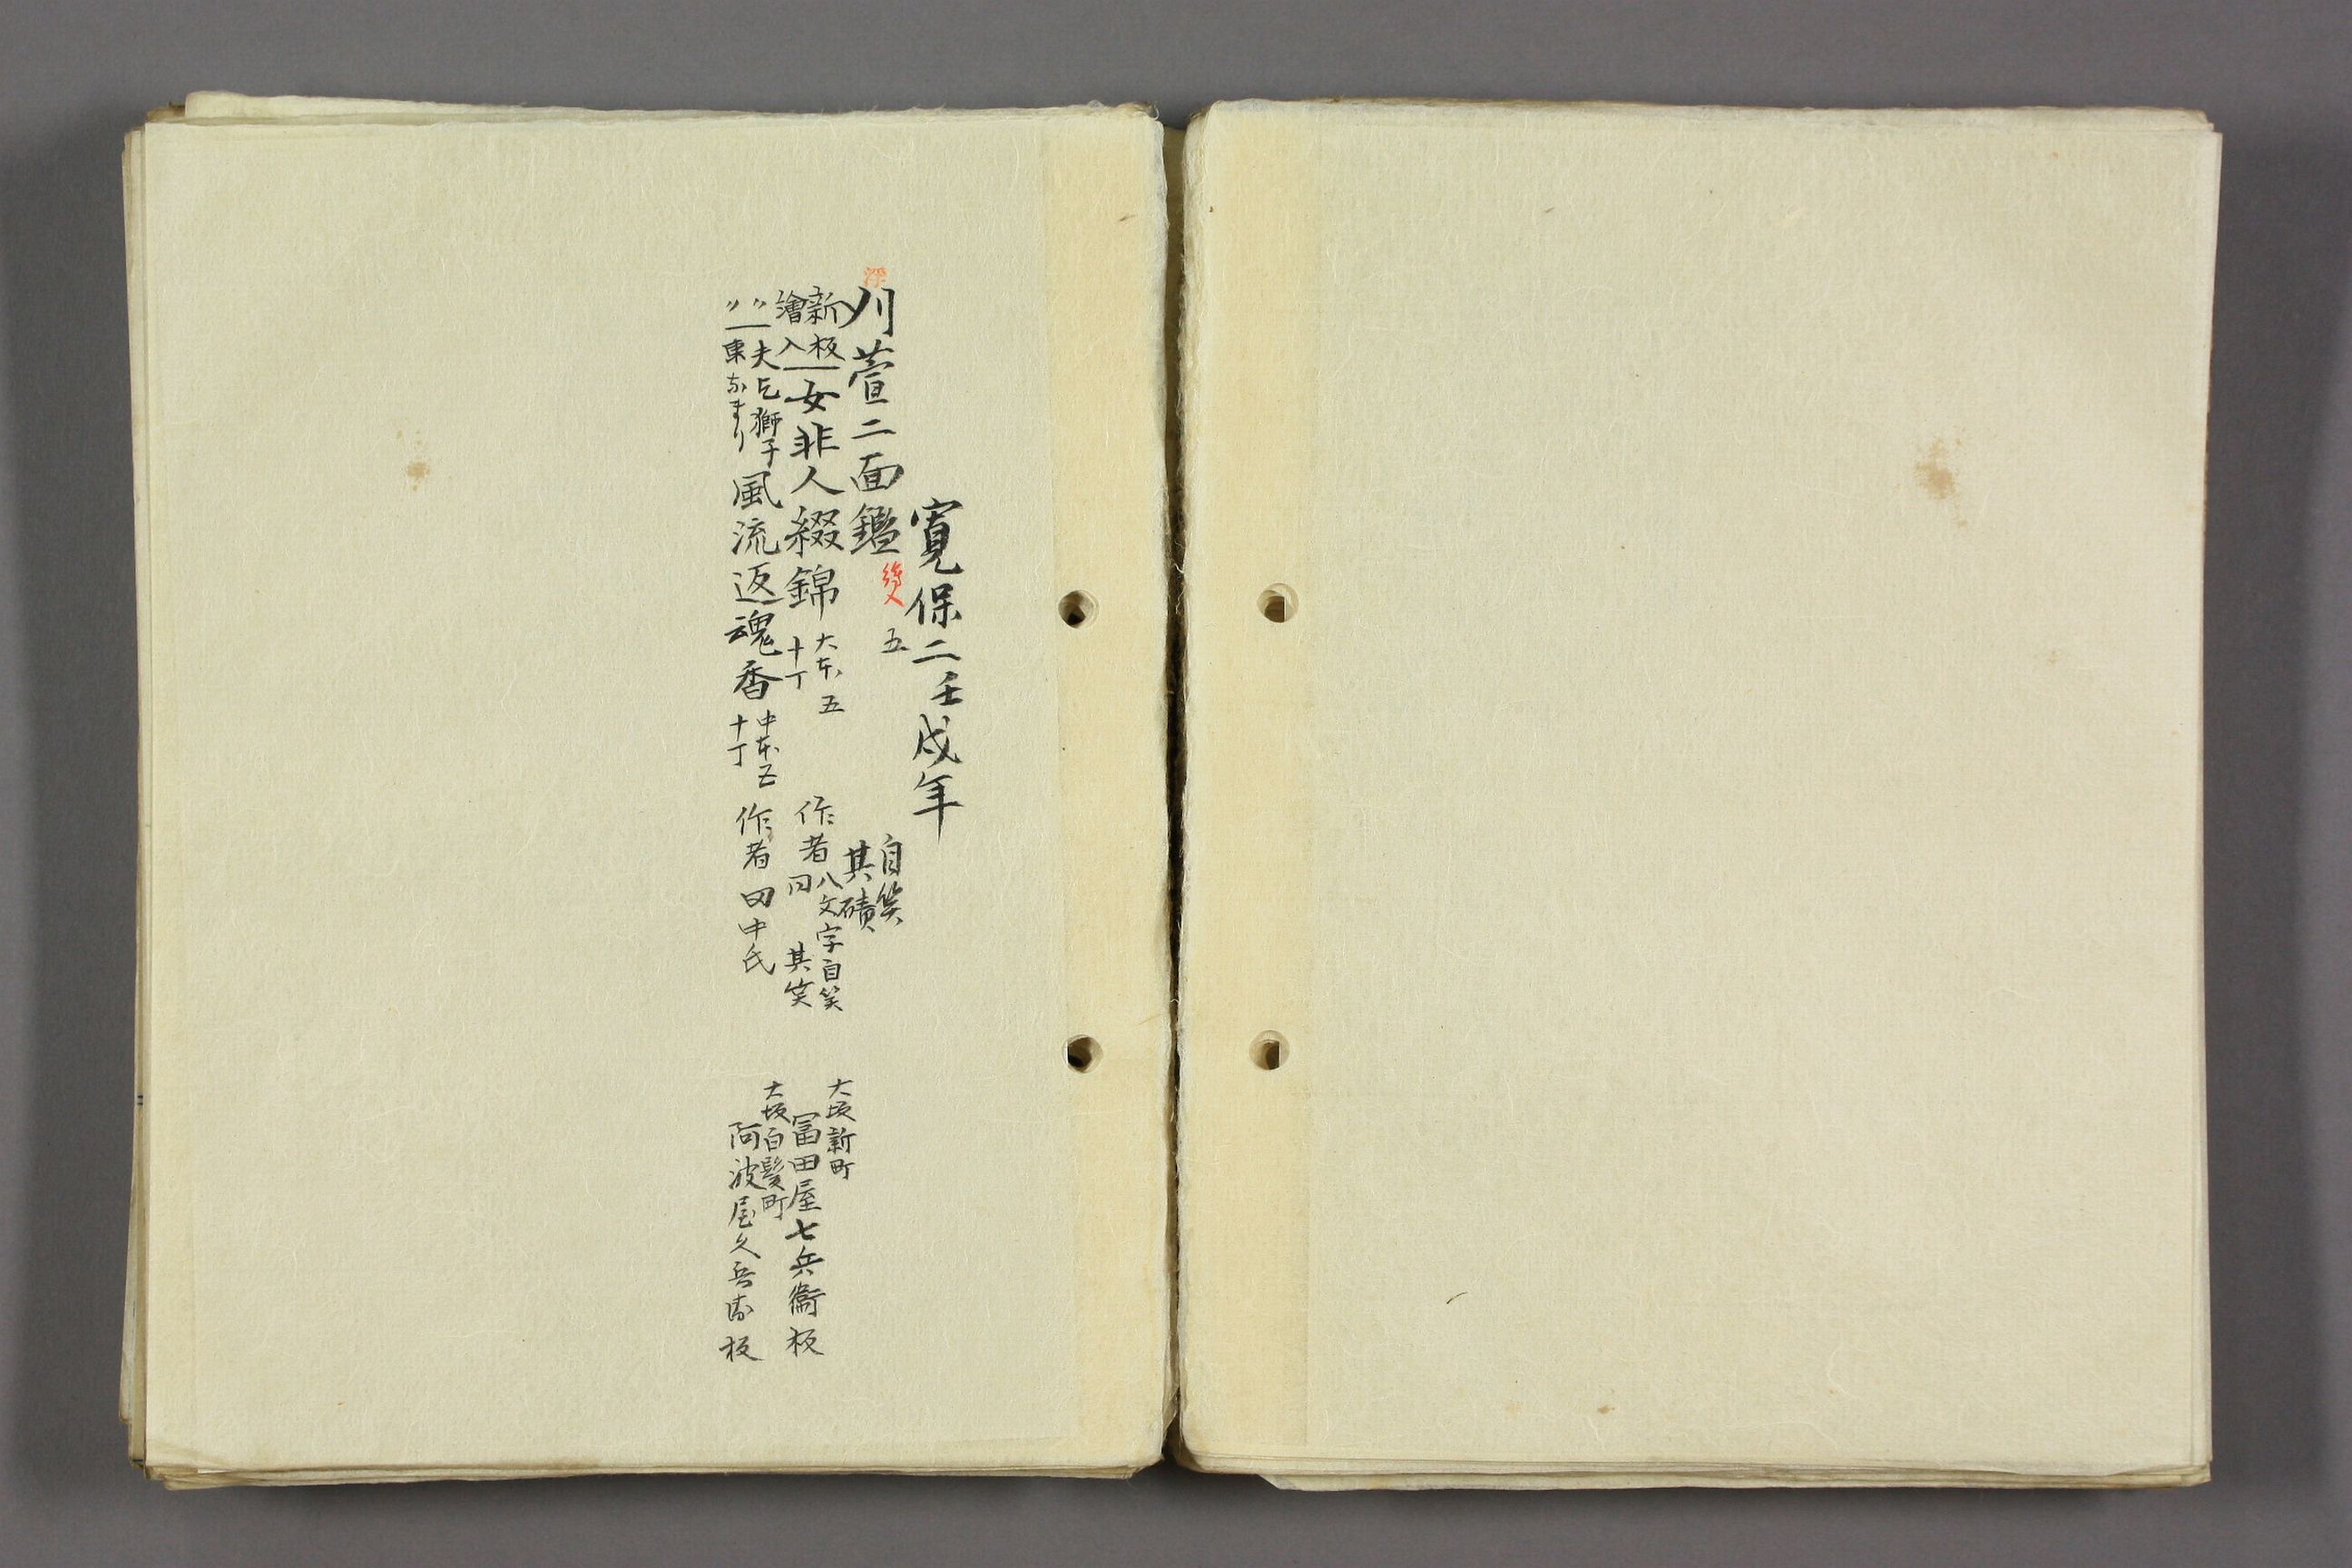 寛保二壬戌年
川萱二面鑑 五 自笑 其磧
新板 繪入 女非人綴錦 大本五 十丁 作者 八文字自笑 同 其笑 大坂新町 冨田屋七兵衞板
〃〃 夫乞獅子 東なまり 風流返魂香 中本五 十丁 作者 田中氏 大坂白髪町 阿波屋久兵衛板